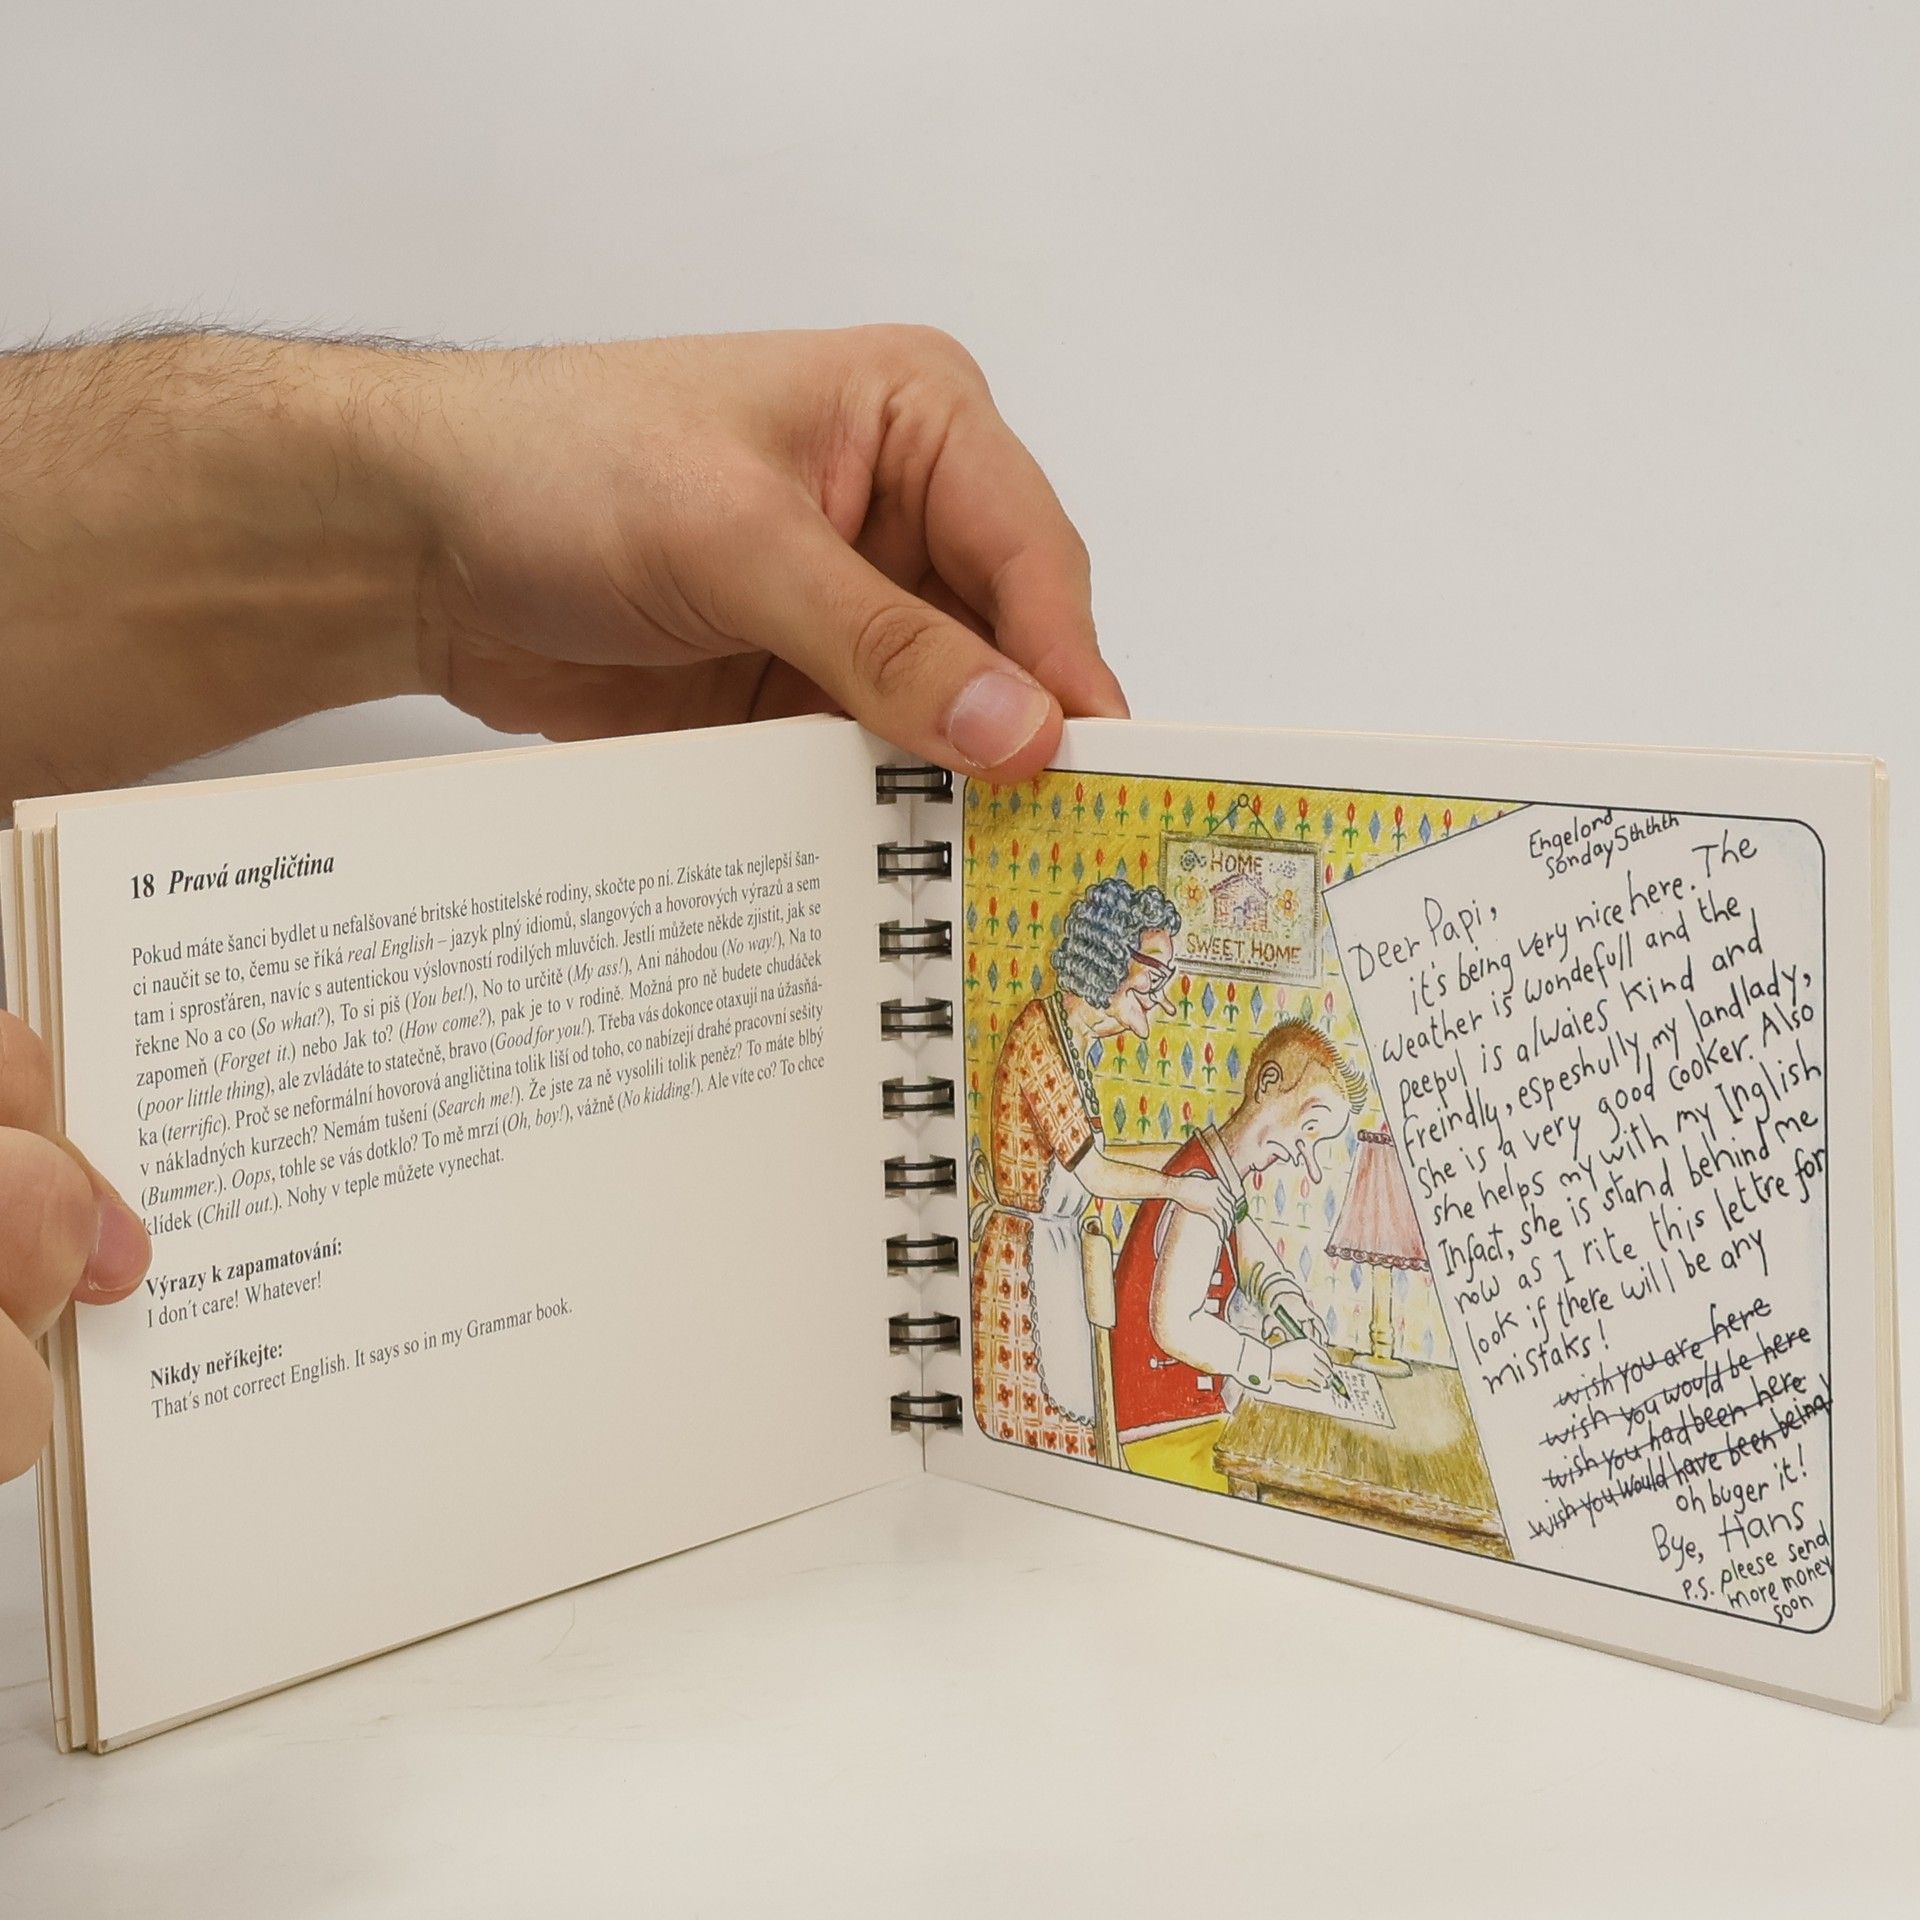 18 Pravá angličtina
Pokud máte šanci bydlet u nefalšované britské hostitelské rodiny, skočte po ní. Získáte tak nejlepší šan-
ci naučit se to, čemu se říká real English – jazyk plný idiomů, slangových a hovorových výrazů a sem
tam i sprosťáren, navíc s autentickou výslovností rodilých mluvčích. Jestli můžete někde zjistit, jak se
řekne No a co (So what?), To si piš (You bet!), No to určitě (My ass!), Ani náhodou (No way!), Na to
zapomeň (Forget it.) nebo Jak to? (How come?), pak je to v rodině. Možná pro ně budete chudáček
(poor little thing), ale zvládáte to statečně, bravo (Good for you!). Třeba vás dokonce otaxují na úžasňá-
ka (terrific). Proč se neformální hovorová angličtina tolik liší od toho, co nabízejí drahé pracovní sešity
v nákladných kurzech? Nemám tušení (Search me!). Že jste za ně vysolili tolik peněz? To máte blbý
(Bummer.). Oops, tohle se vás dotklo? To mě mrzí (Oh, boy!), vážně (No kidding!). Ale víte co? To chce
klídek (Chill out.). Nohy v teple můžete vynechat.
Výrazy k zapamatování:
I don´t care! Whatever!
Nikdy neříkejte:
That´s not correct English. It says so in my Grammar book.
HOME
SWEET HOME
Engelond
Sonday 5ththth
Deer Papi,
it's being very nice here. The
weather is wondefull and the
peepul is alwaies kind and
freindly, espeshully my landlady,
She is a very good cooker. Also
she helps my with my Inglish
Infact, she is stand behind me
now as I rite this lettre for
look if there will be any
mistaks!
wish you are here
wish you would be here
wish you had been here
wish you would have been being
oh buger it!
Bye, Hans
P.S. pleese send
more money
soon